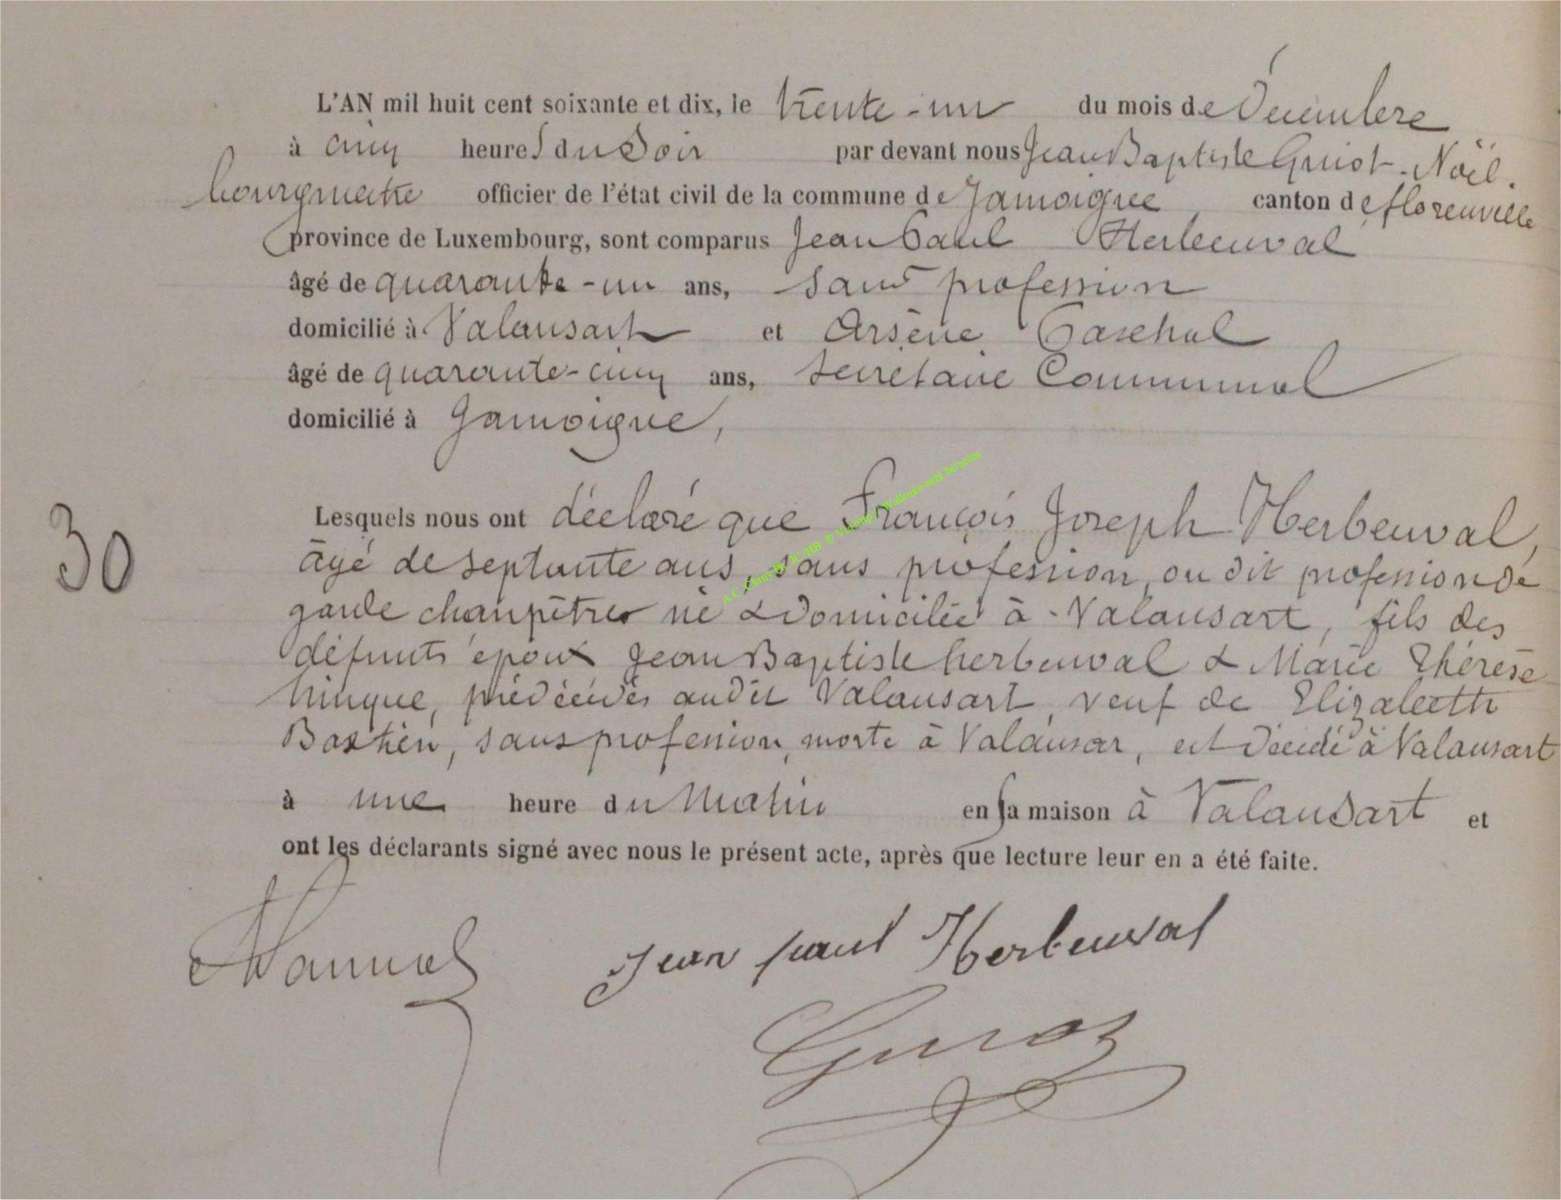 L'AN mil huit cent soixante et dix, le trente-un du mois de Décembre
à cinq heures du Soir par devant nous Jean Baptiste Guiot-Noël.
bourgmetre officier de l'état civil de la commune de Jamoigne, canton de florenville
province de Luxembourg, sont comparus Jean Paul Herbeuval
âgé de quarante-un ans, sans profession
domicilié à Valansart et Arsène Paschal
âgé de quarante-cinq ans, Secrétaire Communal
domicilié à Jamoigne,
30
Lesquels nous ont déclaré que François Joseph Herbeuval,
âgé de septante ans, sans profession, ou dit profession de
garde champêtre né & domicilié à Valansart, fils des
défunts époux Jean Baptiste herbeuval & Marie Thérèse
prédécédés audit Valansart, veuf de Elizabeth
Bastien, sans profession, morte à Valansar, est décédé à Valansart
à une heure du Matin en sa maison à Valansart et
ont les déclarants signé avec nous le présent acte, après que lecture leur en a été faite.
Jean paul Herbeuval